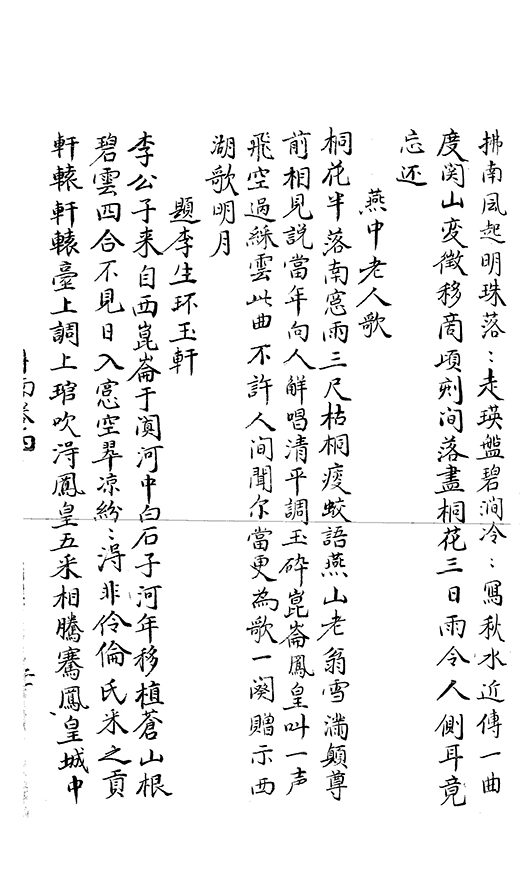 拂南風起明珠落〻走瑛盤碧澗冷〻寫秋水近傳一曲
度関山变徵移商頃刻间落盡桐花三日雨令人側耳竟
忘还
燕中老人歌
桐花半落南窓雨三尺枯桐瘦蛟語燕山老翁雪满顛尊
前相見説當年向人鲜唱清平調玉碎崑崙鳳皇叫一声
飛空過綵雲此曲不許人间聞尔當更為歌一闋贈示西
湖歌明月
題李生环玉軒
李公子来自西崑崙于闐河中白石子河年移植蒼山根
碧雲四合不見日入窓空翠凉紛〻淂非伶倫氏米之貢
軒轅軒轅臺上調上琯吹淂鳳皇五采相騰騫鳳皇城中
卷四